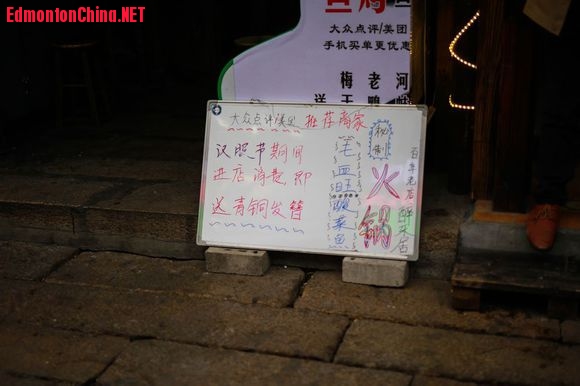 EdmontonChina.NET
大众点评/美团
手机买单更优惠
梅 老 河
大众点评/美团 推荐商家
汉照节期间
进店消费,即
送青铜发簪
毛血旺
酸菜鱼
秘制
火锅
百年老店